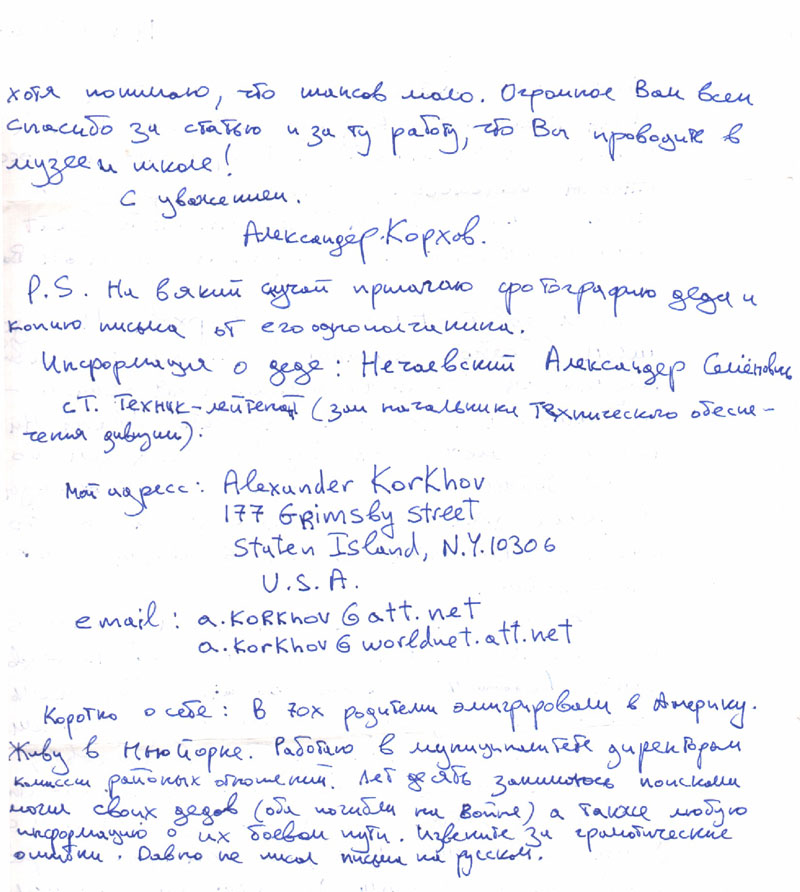 хотя понимаю, что шансов мало. Огромное Вам всем
спасибо за статью и за ту работу, что Вы проводите в
музее и школе!
С уважением.
Александер Корхов.
P.S. На всякий случай прилагаю фотографию деда и
копию письма от его однополчанина.
Информация о деде: Нечаевский Александер Семёнович
ст. Техник-лейтенант (зам начальника Технического обеспе-
чения дивизии).
Мой адресс: Alexander Korkhov
177 Grimsby street
Staten Island, N.Y. 10306
U.S.A.
email: a.korkhov@att.net
a.korkhov@worldnet.att.net
Коротко о себе: В 70х родители эмигрировали в Америку.
Живу в Нью Йорке. Работаю в муниципалитете директором
комиссии районых отношений. Лет десять занимаюсь поисками
могил своих дедов (оба погибли на войне) а также любую
информацию о их боевом пути. Извените за граматические
ошибки. Давно не писал письма на русском.